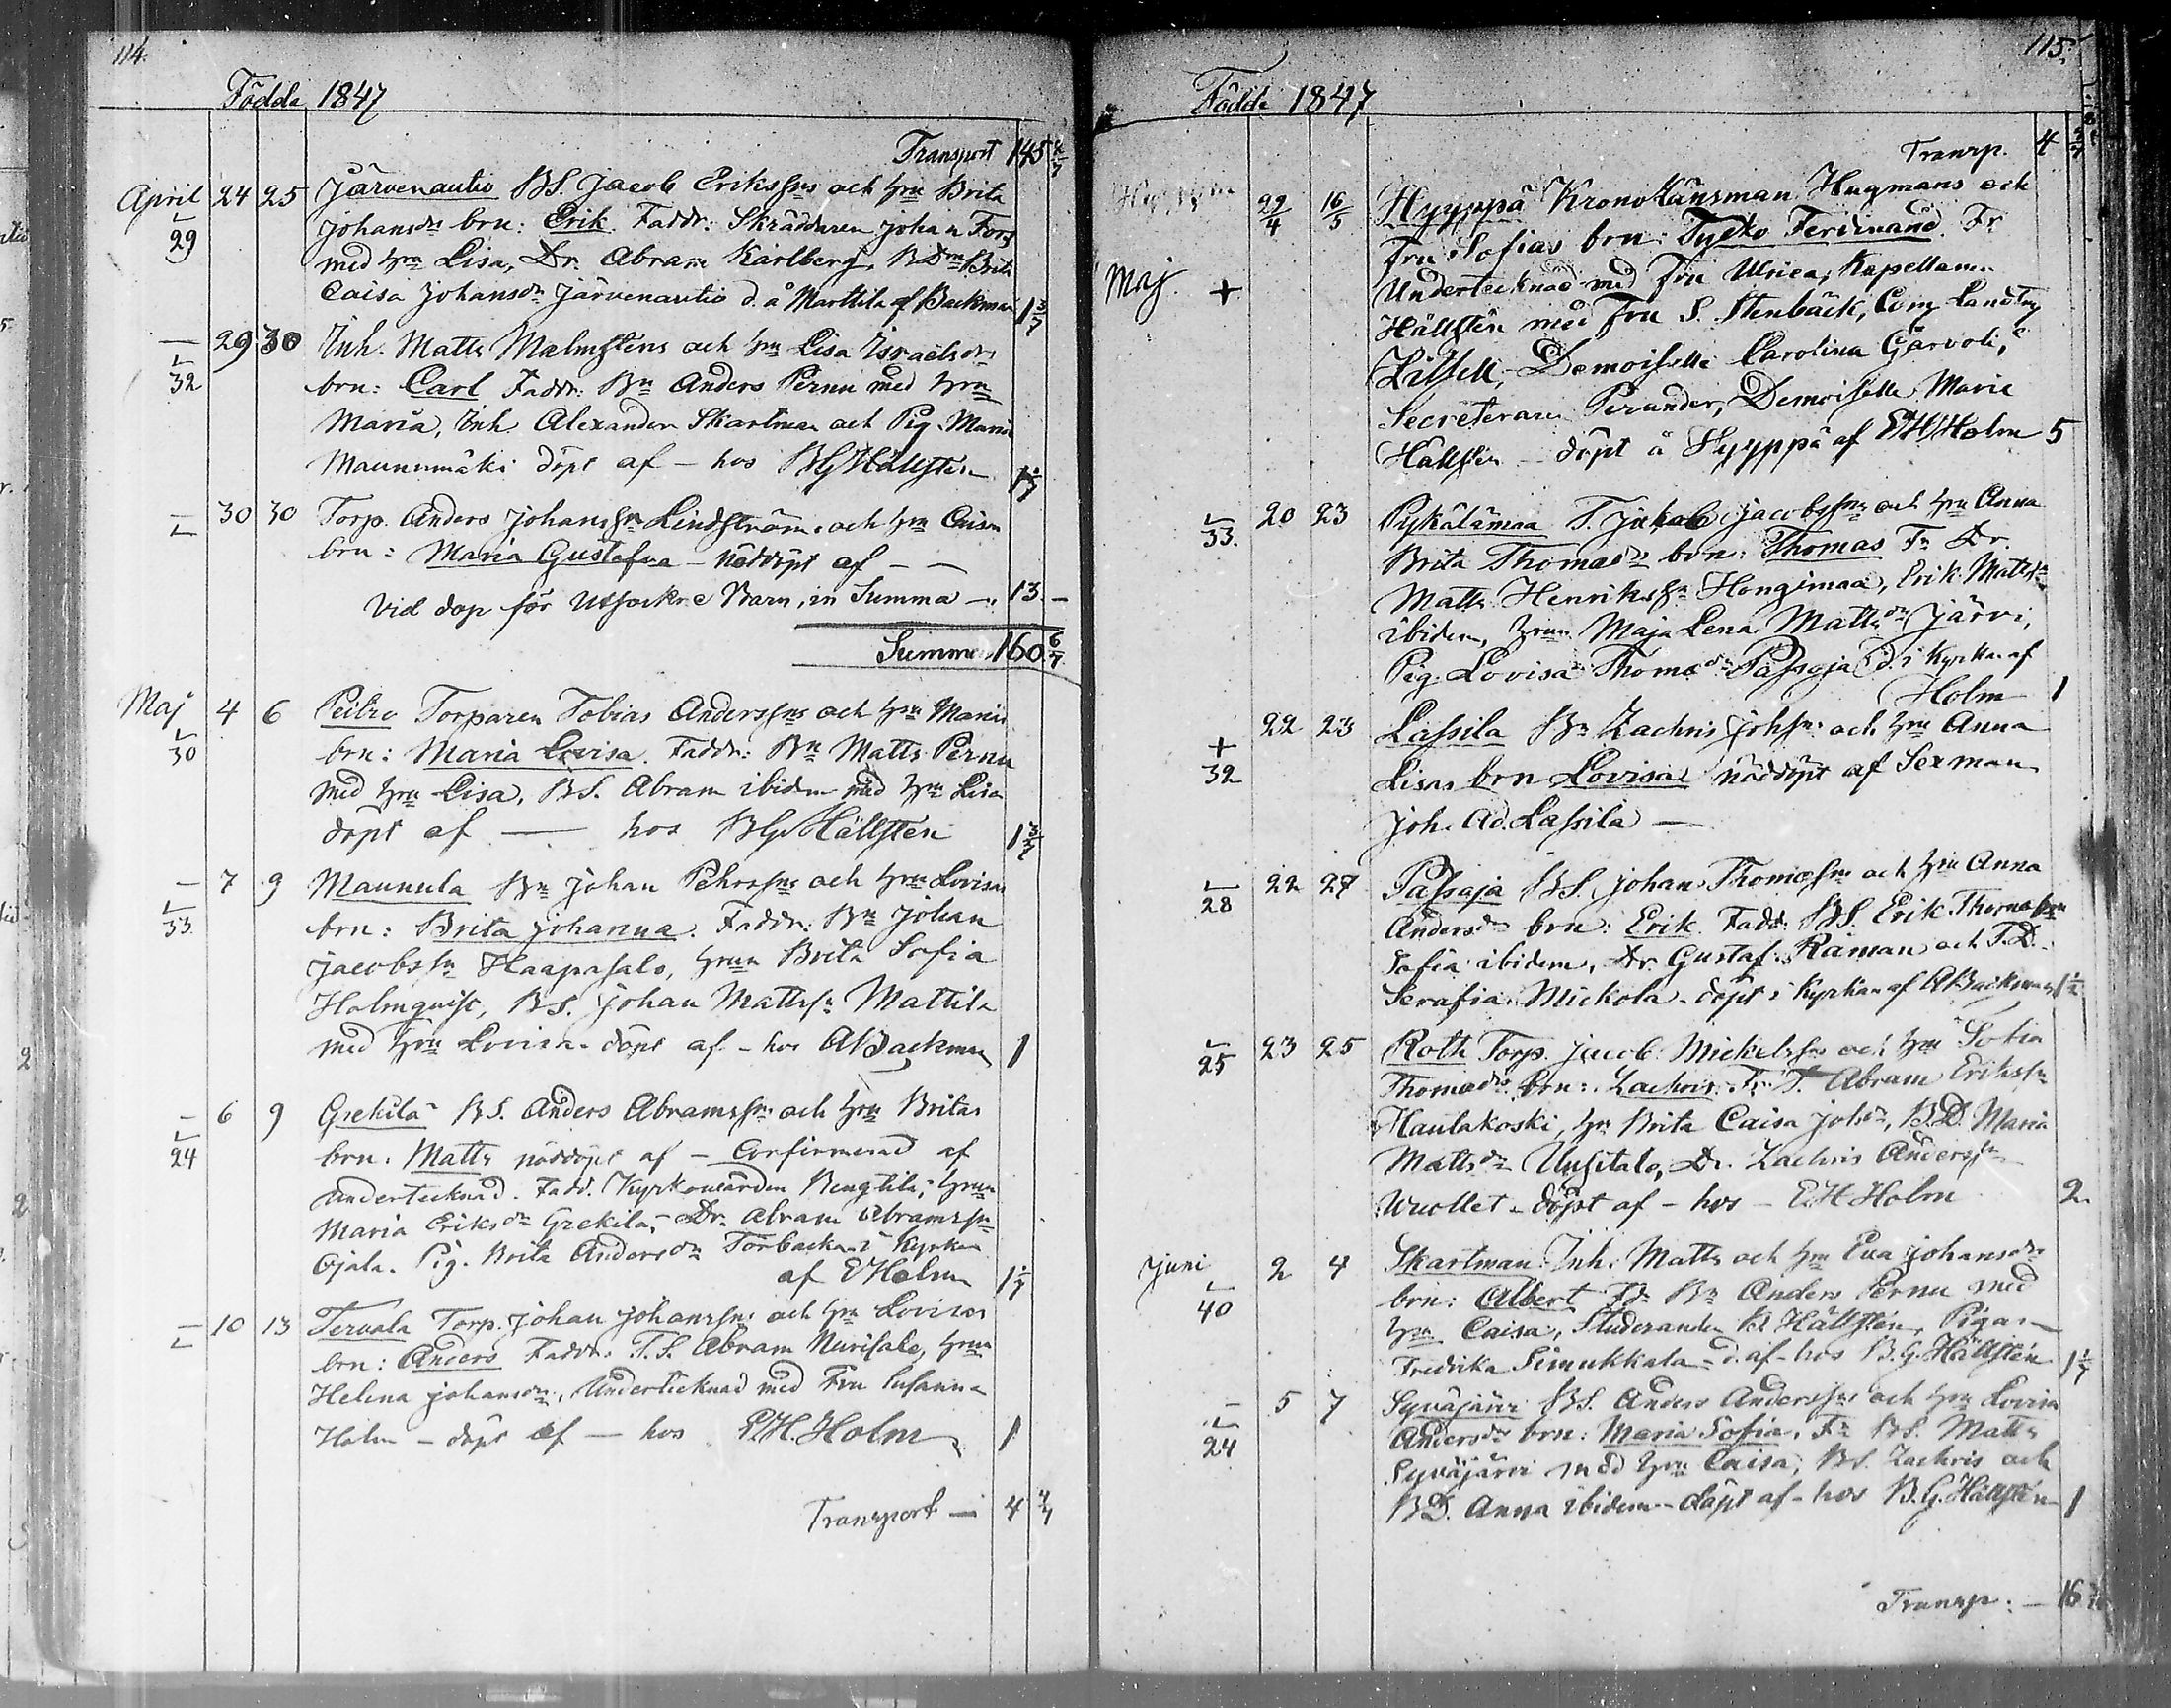 114.
Födda 1847
Transport 145 4/7
April 24 25 Järvenautio BS. Jacob Erikssns och hru Brita
29 Johansdr brn: Erik. Faddr: Skräddaren Johan Fors
med hru Lisa, Dr. Abram Karlberg, BDm Brita
Caisa Johansdr Järvenautio d. å Marttila af Backman 1 3/7
— 29 30 Inh. Matts Malmstens och hru Lisa Israelsdrs
32 brn: Carl Faddr: Bn Anders Pernu med hru
Maria, Inh. Alexander Skartman och Pig. Maria
Maunumäki döpt af — hos BG Hällsten 1 1/7
— 30 30 Torp. Anders Johanssn Lindström och hru Caisa
brn: Maria Gustafva — nöddöpt af — —
Vid dop för utsockne Barn, in Summa — 13. —
Summa 160. 6/7
Maj 4 6 Peitzo Torparen Tobias Anderssns och hru Marias
30 brn: Maria Lovisa. Faddr: Bn Matts Pernu
med hru Lisa, BS. Abram ibidem med hru Lisa
döpt af — hos BG Hällsten 1 3/7
— 7 9 Maunula Bn Johan Pehrssns och hru Lovisas
33. brn: Brita Johanna. Faddr: Bn Johan
Jacobssn Haapasalo, hrun Brita Sofia
Holmquist, BS. Johan Mattssn Mattila
med hru Lovisa. döpt af — hos ABackman 1
— 6 9 Grekilä BS. Anders Abramssns och hru Britas
24 brn. Matts nöddöpt af — Confirmerad af
undertecknad. Fadd. Kyrkowärden Bengtila, hrun
Maria Eriksdr Grekilä, Dr. Abram Abramssn
Ojala. Pig. Brita Andersdr Torbacka i Kyrkan
af EHolm 1 1/7
— 10 13 Tervala Torp. Johan Johanssns och hru Lovisas
brn: Anders Faddr: T.S. Abram Nurisalo, hrun
Helena Johansdr, Undertecknad med Fru Susanna
Holm — döpt af — hos E.H. Holm 1
Transport — 4 4/7
115.
Födde 1847
Transp. 4 4/7
29/4 16/5 Hyyppä Kronolänsman Hagmans och
Fru Sofias brn: Tycko Ferdinand. Fr
Maj + Undertecknad med Fru Ulrica, Kapellanen
Hällsten med Fru S. Stenbäck, Com. Landtm
Lithell, Demoiselle Carolina Gärvoli,
Secreteraren Perander, Demoiselle Marie
Hällsten — döpt å Hyyppä af EH Holm 5
20 23 Pykälämaa T. Jakob Jacobssns och hru Anna
33. Brita Thomasdrs brn: Thomas Fr Dr.
Matts Henrikssn Hongimaa, Erik Mattssn
ibidem, hrun Maja Lena Mattsdr Järvi,
Pig. Lovisa Thomasdr Passoja d. i Kyrkan af
Holm 1
22 23 Lassila Bn Zachris Johssns och hru Anna
+ 32 Lisas brn Lovisa nöddöpt af Sexman
Joh. Ad. Lassila —
22 27 Passoja BS. Johan Thomassns och hru Anna
28 Andersdrs brn: Erik. Fadd: BS. Erik Thomas hru
Sofia ibidem, Dr. Gustaf Raiman och T.D.
Serafia Mickola — döpt i Kyrkan af ABackman 1 1/2
23 25 Roth Torp. Jacob Mickelssns och hru Sofia
25 Thomasdrs brn: Zachris. Fr. T. Abram Erikssn
Hautakoski, hr Brita Caisa Johsdr, B.D. Maria
Mattsdr Uusitalo, Dr. Zachris Anderssn
Wuollet — döpt af — hos — E.H. Holm 2.
Juni 2 4 Skartman Inh. Matts och hru Eva Johansdrs
40 brn: Albert Fdr Bn Anders Pernu med
hru Caisa, Studeranden K. Hällsten, Pigan
Fredrika Simukkala — d. af — hos B.G. Hällsten 1 1/7
— 5 7 Syväjärvi BS. Anders Anderssns och hru Lovisa
24 Andersdrs brn: Maria Sofia. Fr BS. Matts
Syväjärvi med hru Caisa, BS. Zachris och
BD. Anna ibidem — döpt af — hos B.G. Hällsten 1
Transp. — 16